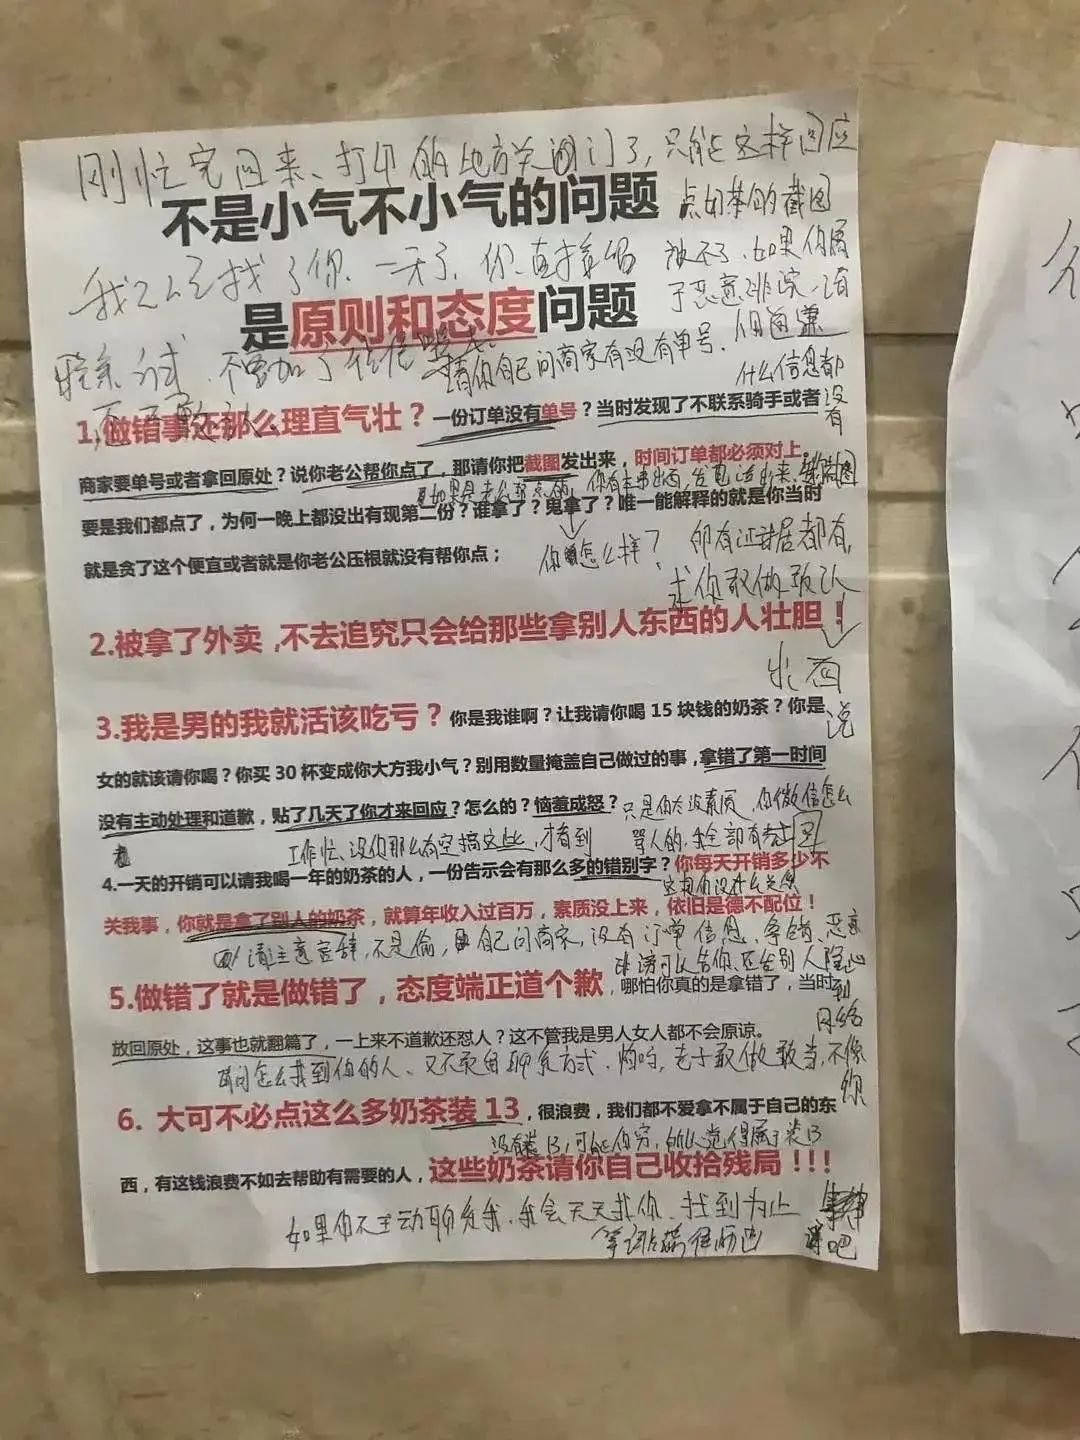 刚忙完回来、打印的地方关门了,只能这样回应
不是小气不小气的问题
点奶茶的截图
我已经找了你、一天了、你直接
是原则和态度问题
被不了、如果你属
于恶意诽谤、没有
请你自己问商家有没有单号、
什么信息都
没有
1,做错事还那么理直气壮?一份订单没有单号?当时发现了不联系骑手或者
商家要单号或者拿回原处?说你老公帮你点了,那请你把截图发出来,时间订单都必须对上。
要是我们都点了,为何一晚上都没出有现第二份?谁拿了?鬼拿了?唯一能解释的就是你当时
就是贪了这个便宜或者就是你老公压根就没有帮你点;
你怎么样?
求你敢做敢认
2.被拿了外卖,不去追究只会给那些拿别人东西的人壮胆!
3.我是男的我就活该吃亏?你是我谁啊?让我请你喝15块钱的奶茶?你是
说
女的就该请你喝?你买30杯变成你大方我小气?别用数量掩盖自己做过的事,拿错了第一时间
没有主动处理和道歉,贴了几天了你才来回应?怎么的?恼羞成怒?
只是你太没素质、你微信怎么
工作忙、没你那么有空搞这些、才看到
骂人的,我全部有
4.一天的开销可以请我喝一年的奶茶的人,一份告示会有那么多的错别字?你每天开销多少不
这想你没什么关系
关我事,你就是拿了别人的奶茶,就算年收入过百万,素质没上来,依旧是德不配位!
请注意言辞,不是偷,自己问商家,没有订单信息、拿错、恶意
诽谤可以告你、还发别人隐私
到
网络
5.做错了就是做错了,态度端正道个歉,哪怕你真的是拿错了,当时
放回原处,这事也就翻篇了,一上来不道歉还怼人?这不管我是男人女人都不会原谅。
请问怎么找到你的人、又不敢留联系方式、怕吗,老子敢做敢当,不像
你
6. 大可不必点这么多奶茶装13,很浪费,我们都不爱拿不属于自己的东
没有装13,可能你穷,所以觉得属于装13
西,有这钱浪费不如去帮助有需要的人,这些奶茶请你自己收拾残局!!!
如果你不主动联系我、我会天天找你、找到为止
吧